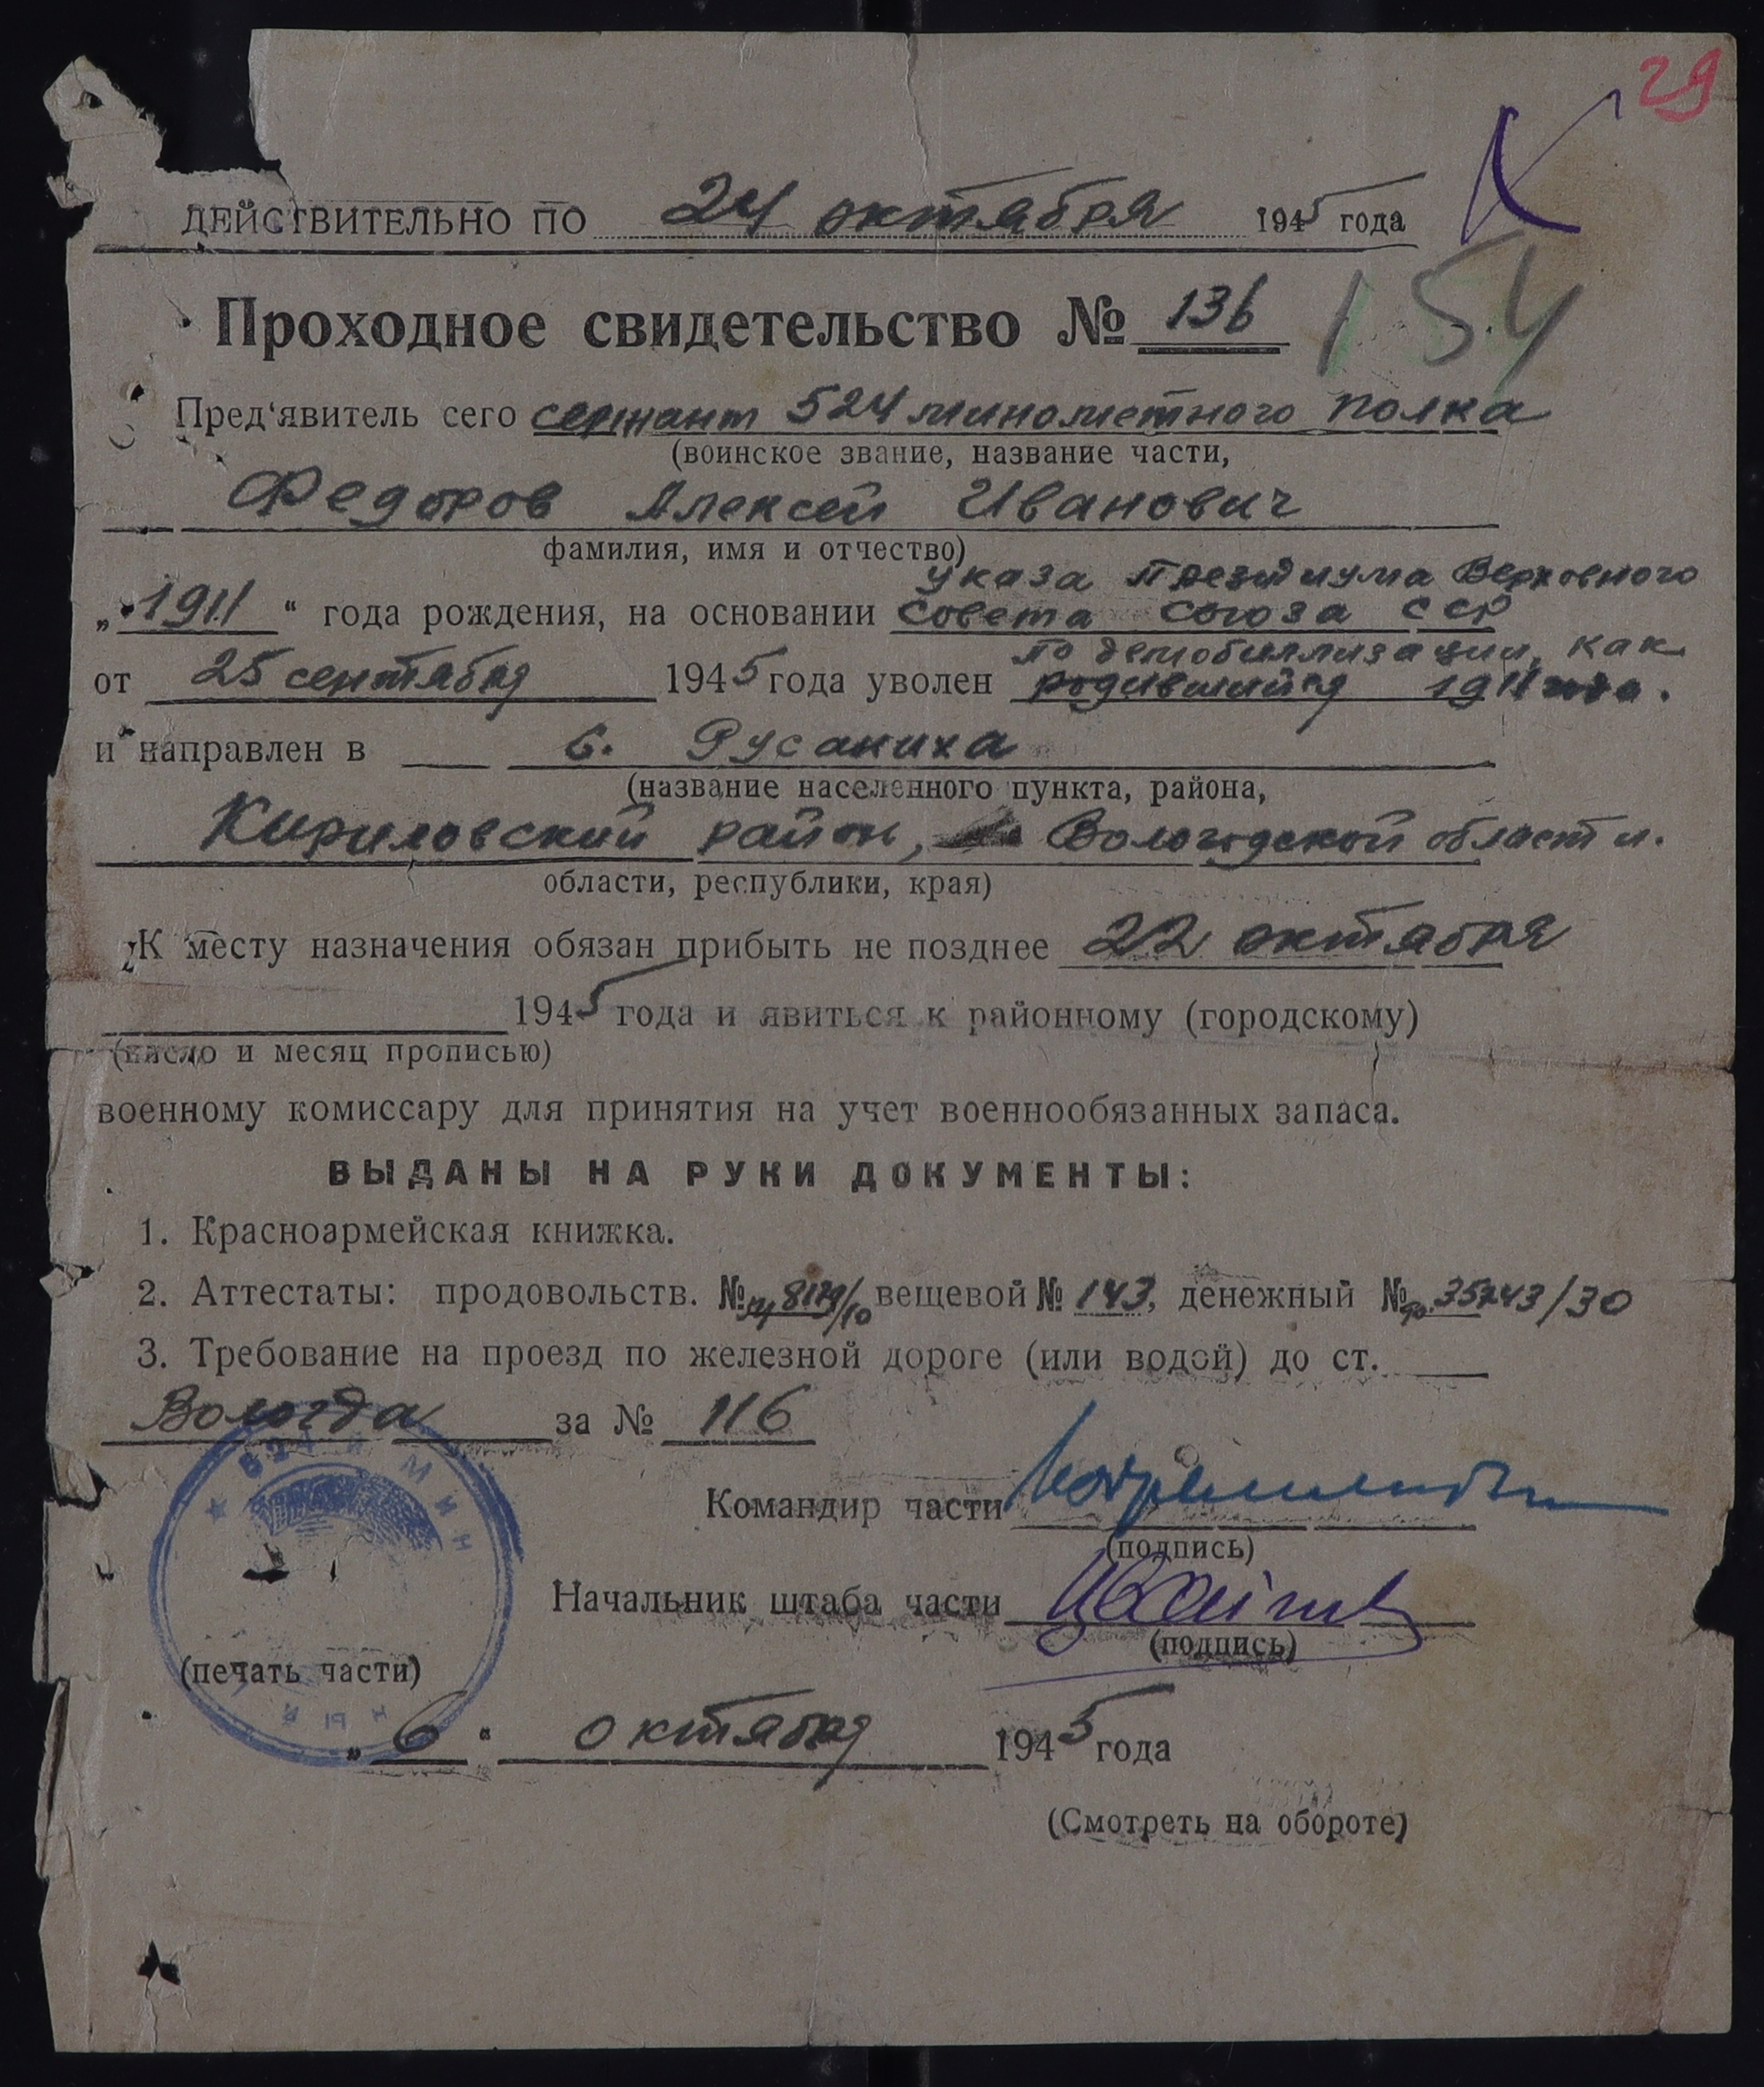 29
ДЕЙСТВИТЕЛЬНО ПО 24 октября 1945 года
Проходное свидетельство № 136
154
Пред'явитель сего сержант 524 минометного полка
(воинское звание, название части,
Федоров Алексей Иванович
фамилия, имя и отчество)
указа Президиума Верховного
„1911“ года рождения, на основании Совета Союза ССР
по демобиллизации, как
от 25 сентября 1945 года уволен родившийся 1911 года.
и направлен в с. Русаниха
(название населенного пункта, района,
Кириловский район, Вологодской области.
области, республики, края)
К месту назначения обязан прибыть не позднее 22 октября
1945 года и явиться к районному (городскому)
(число и месяц прописью)
военному комиссару для принятия на учет военнообязанных запаса.
ВЫДАНЫ НА РУКИ ДОКУМЕНТЫ:
1. Красноармейская книжка.
2. Аттестаты: продовольств. № 8129/10 вещевой № 143, денежный № 35243/30
3. Требование на проезд по железной дороге (или водой) до ст.
Вологда за № 116
524 й МИН
Командир части
(подпись)
Начальник штаба части
(подпись)
(печать части)
НЫЙ
„6“ октября 1945 года
(Смотреть на обороте)